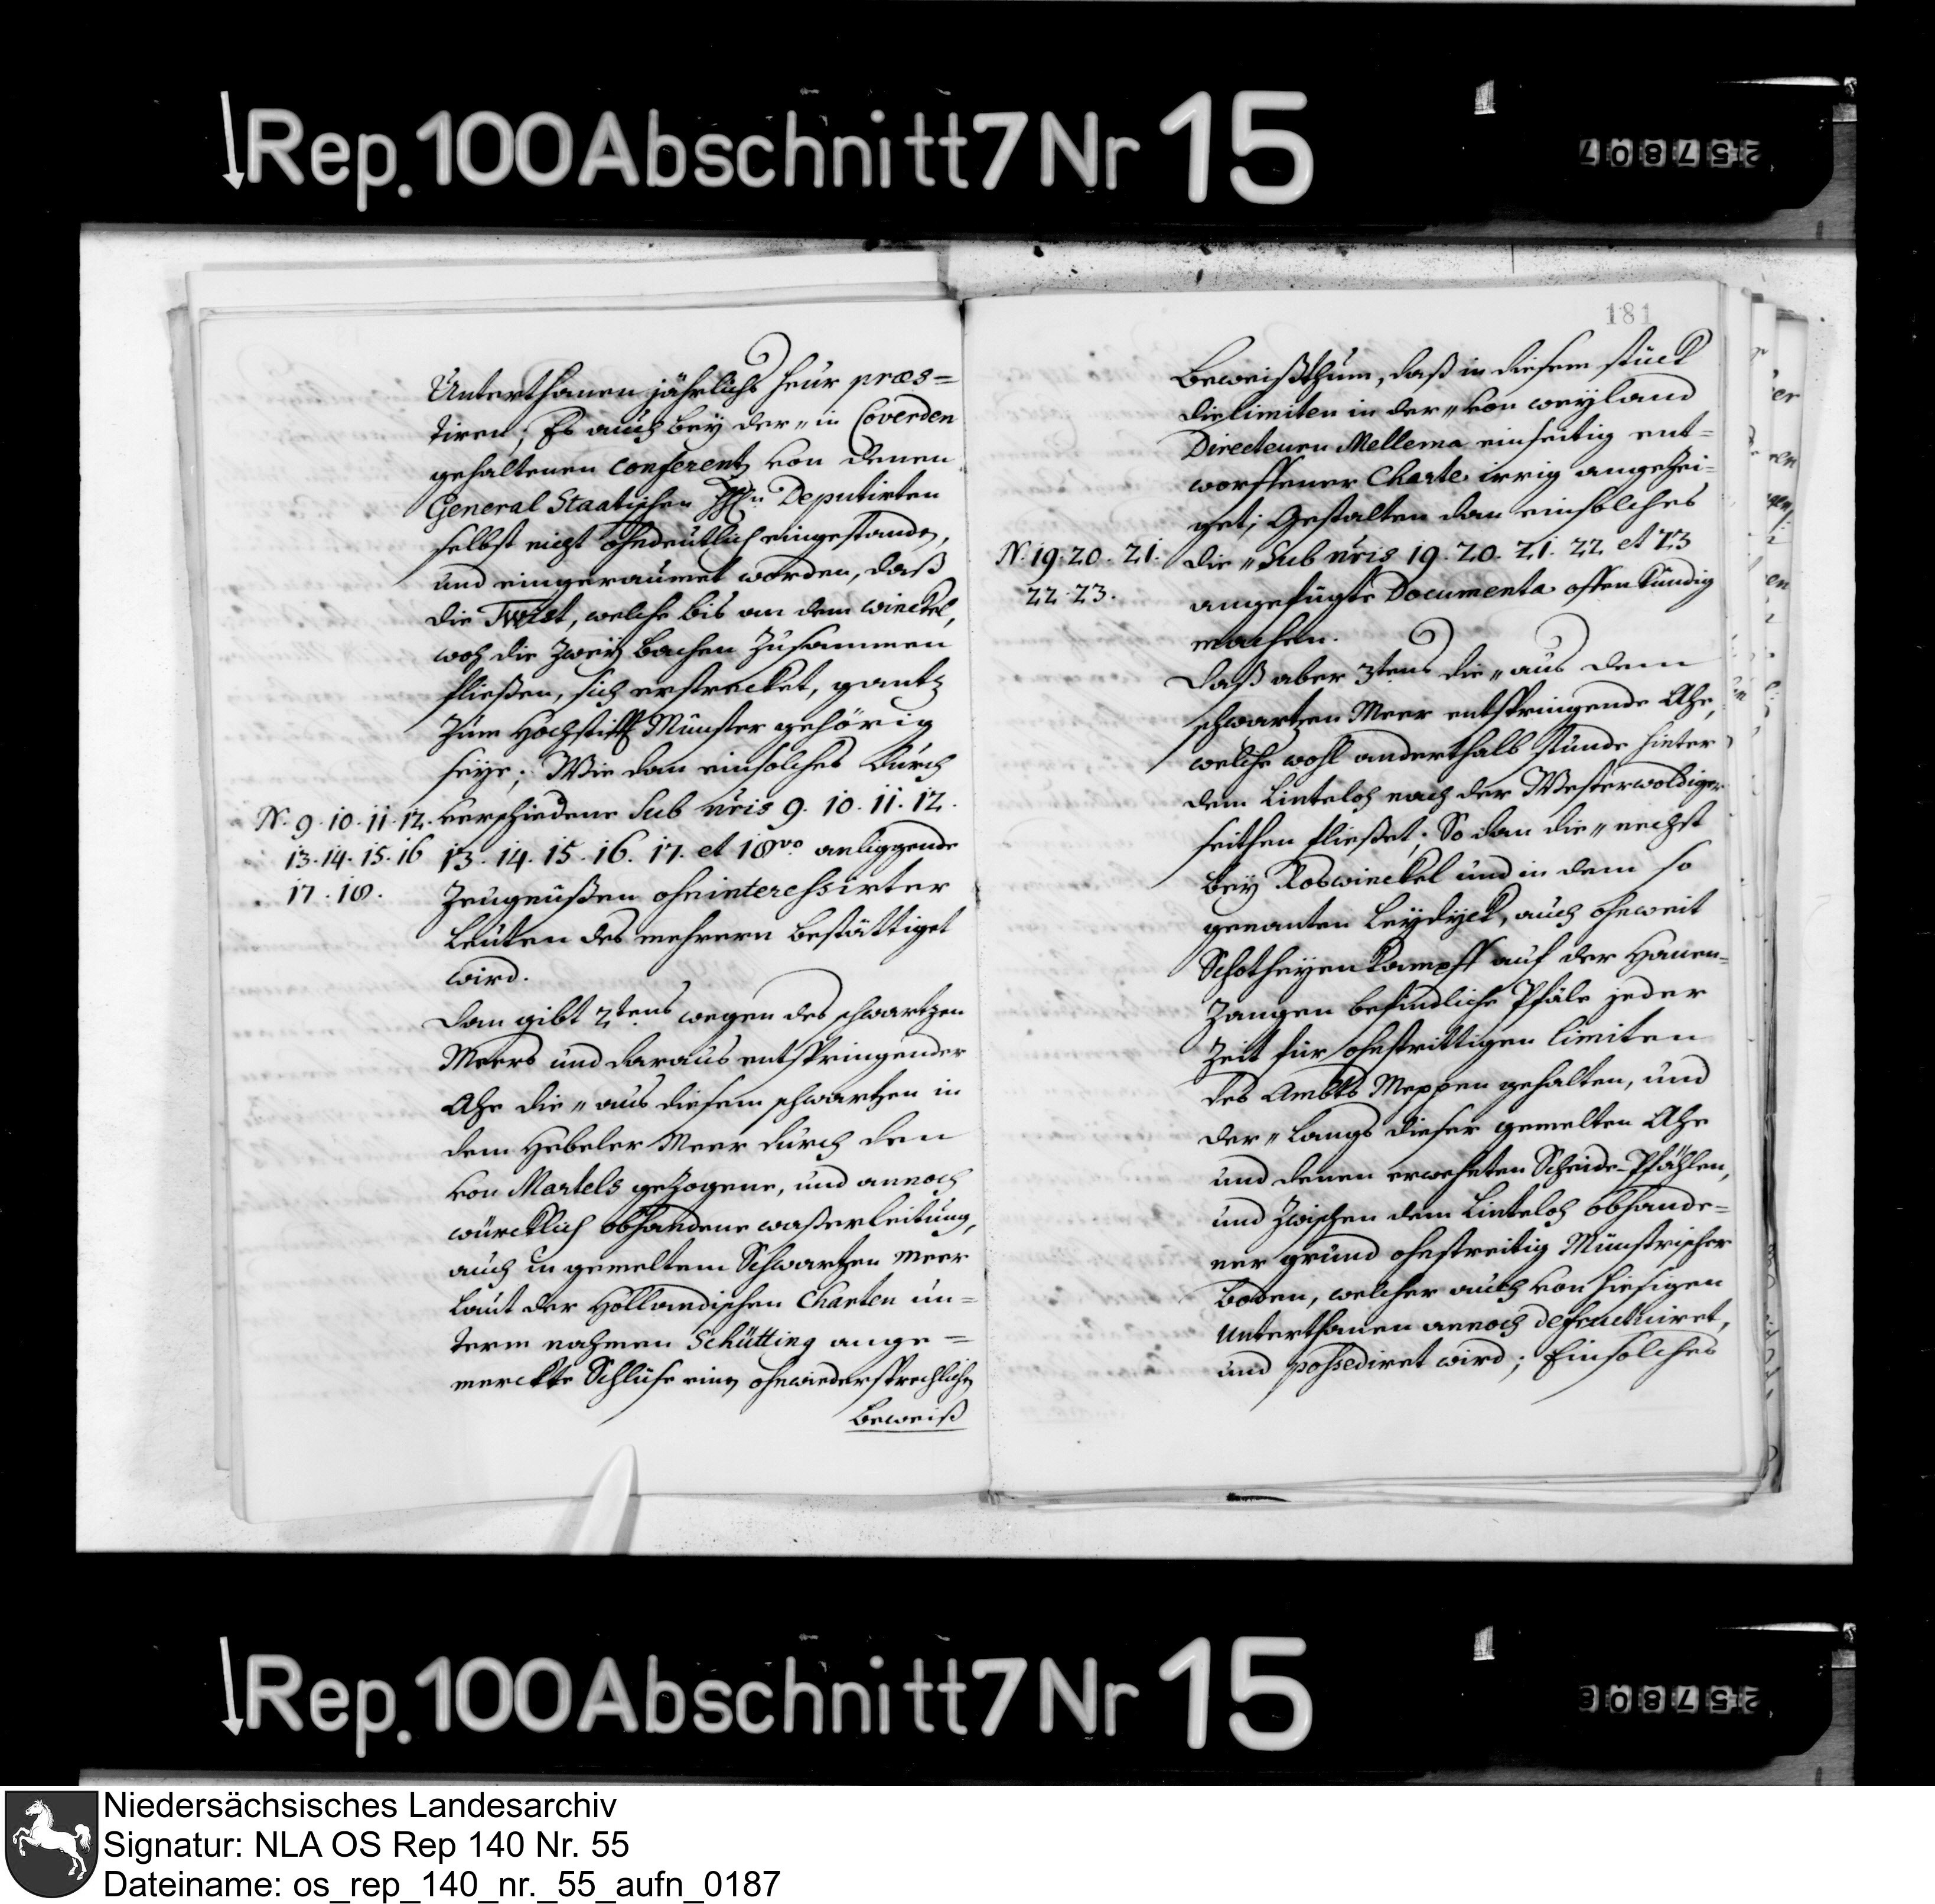 ↓Rep.100Abschnitt7Nr 15
257807
Unterthanen jährlichs heur præs=
tiren; Es auch bey der„ in Coverden
gehaltenen conferentz von denen
General Staatischen HH.n Deputirten
selbst nicht ohndeutlich eingestanden,
und eingeraumet worden, daß
die Twist, welche bis an dem winckel,
woh die zwey bachen zusammen
fließen, sich erstrecket, gantz
zum Hochstifft Münster gehörig
seye; Wie dan einsolches durch
N. 9. 10. 11. 12. verschiedene sub nris 9. 10. 11. 12.
13. 14. 15. 16 13. 14. 15. 16. 17. et 18vo anliggende
17. 18. Zeugnüßen ohninteressirter
Leuten des mehrern bestättiget
wird.
Dan gibt 2tens wegen des schwartzen
Meers und daraus entspringender
Ahe die„ aus diesem schwartzen in
dem Hebeler Meer durch den
von Martels gezogene, und annoch
würcklich obhandene waßerleitung,
auch in gemeltem Schwartzen Meer
laut der Hollandischen Charten un=
term nahmen Schütting ange=
merckte Schlüse einen ohnwiedersprechlichen
Beweiß
181
Beweißthum, daß in diesem stück
die limiten in der„ von weyland
Directeuren Mellema einseitig ent=
worffener Charte irrig angezei=
get; Gestalten dan einsolches
N. 19. 20. 21. die„ Sub nris 19. 20. 21. 22 et 23
22. 23. angefügte Documenta offenkündig
machen.
Daß aber 3tens die„ aus dem
schwartzen Meer entspringende Ahe,
welche wohl anderthalb stunde hinter
dem Linteloh nach der Westerwoldiger
seithen fließet; So dan die„ nechst
bey Roswinckel und in dem so
genanten Leydyck, auch ohnweit
Schotheyenkampff auf der Hanen=
zangen befindliche Pfäle jeder
Zeit für ohnstrittigen limiten
des Ambts Meppen gehalten, und
der„ langs dieser gemelten Ahe
und denen erwehnten Scheide-Pfählen,
und zwischen dem Linteloh obhande=
ner grund ohnstreitig Münstrischer
boden, welcher auch von hiesigen
Unterthanen annoch defructuiret,
und possediret wird; Einsolches
↓Rep.100Abschnitt7Nr 15
257808
Niedersächsisches Landesarchiv
Signatur: NLA OS Rep 140 Nr. 55
Dateiname: os_rep_140_nr._55_aufn_0187